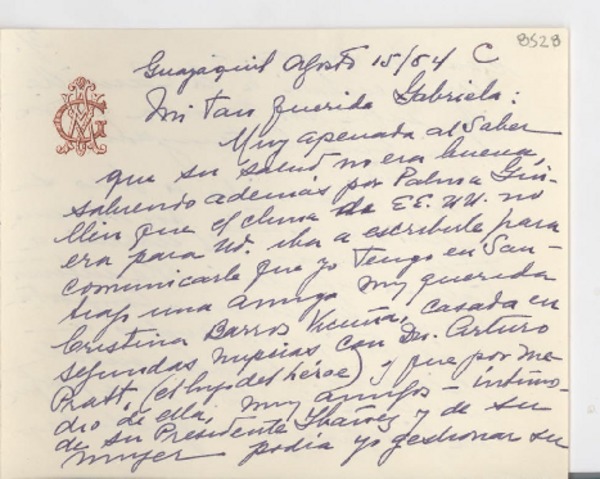 8528
Guayaquil Agosto 15/54 C
Mi tan querida Gabriela:
Muy apenada al saber
que su salud no era buena,
sabiendo además por Palma Gui-
llén que el clima de EE. UU. no
era para Ud. iba a escribirle para
comunicarle que yo tengo en San-
tiago una amiga muy querida
Cristina Barros Vicuña, casada en
segundas nupcias con Dn. Arturo
Pratt, (el hijo del héroe) y que por me-
dio de ella, muy amigos - íntimo-
de su Presidente Ibáñez y de su
mujer podía yo gestionar su